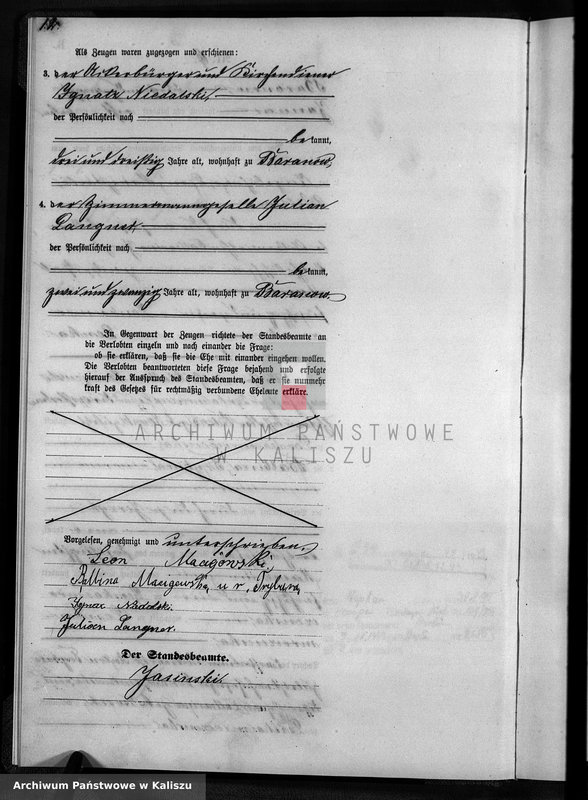 Als Zeugen waren zugezogen und erschienen:
3. der Ackerbürger und Kirchendiener
Ignatz Niedalski,
der Persönlichkeit nach
bekannt,
drei und dreißig Jahre alt, wohnhaft zu Baranow,
4. der Zimmermanngeselle Julian
Langner,
der Persönlichkeit nach
bekannt,
zwei und zwanzig Jahre alt, wohnhaft zu Baranow.
In Gegenwart der Zeugen richtete der Standesbeamte an
die Verlobten einzeln und nach einander die Frage:
ob sie erklären, daß sie die Ehe mit einander eingehen wollen.
Die Verlobten beantworteten diese Frage bejahend und erfolgte
hierauf der Ausspruch des Standesbeamten, daß er sie nunmehr
kraft des Gesetzes für rechtmäßig verbundene Eheleute erkläre.
ARCHIWUM PAŃSTWOWE
W KALISZU
Vorgelesen, genehmigt und unterschrieben.
Leon
Julian Langner.
Der Standesbeamte.
Jasinski.
Archiwum Państwowe w Kaliszu